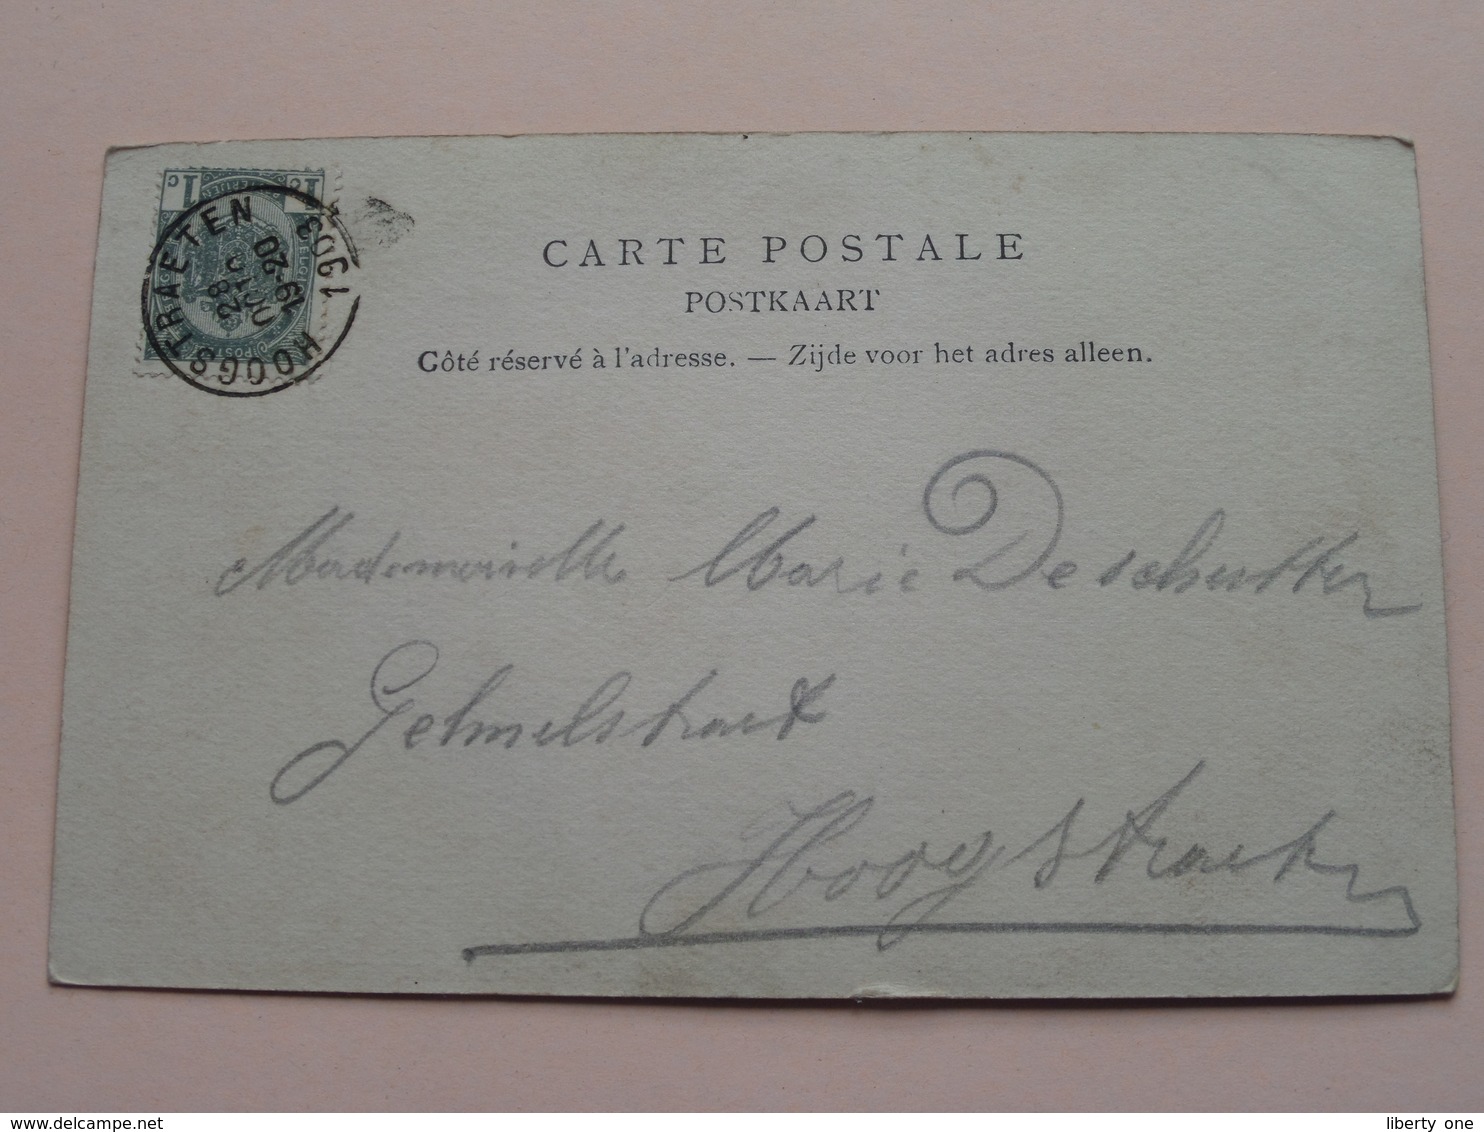 HOOGSTRAETEN
28
19-20
1903
1c 1c
CARTE POSTALE
POSTKAART
Côté réservé à l'adresse. — Zijde voor het adres alleen.
Mademoiselle Marie De schutter
Gelmelstraat
Hoogstraeten
delcampe.net
liberty one